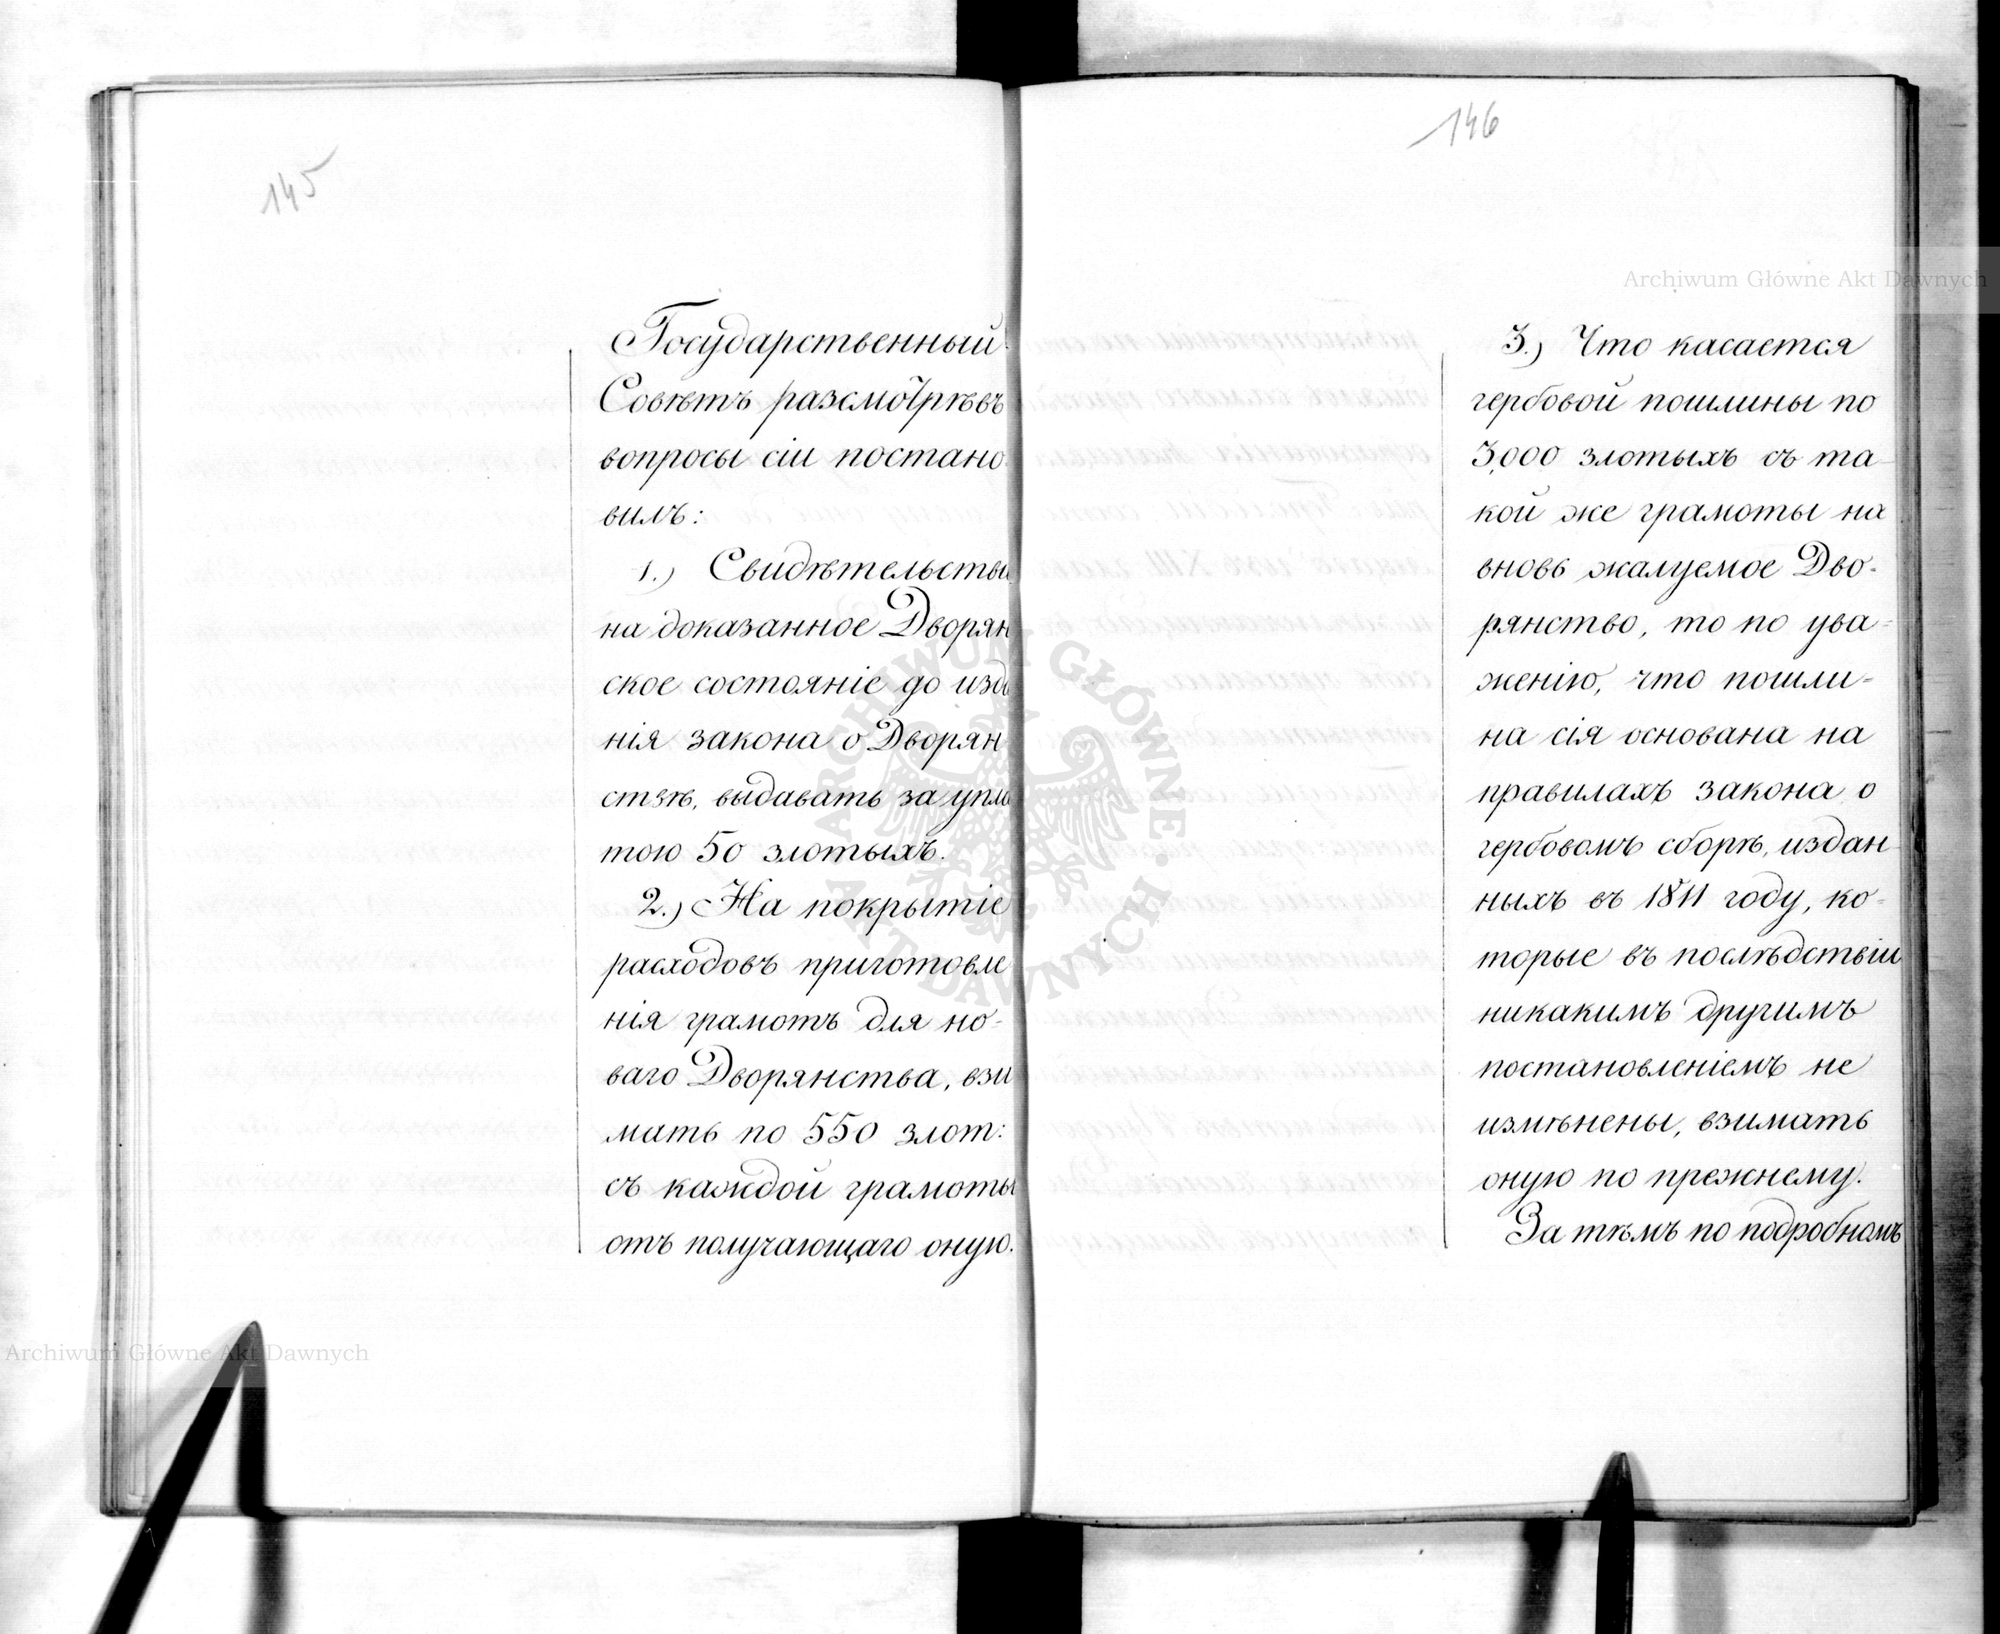 145
Государственный
Совѣтъ разсмотрѣвъ
вопросы сіи постано
вилъ:
1.) Свидѣтельства
на доказанное Дворян
ское состояніе до изда
нія закона о Дворян
ствѣ, выдавать за упла
тою 50 злотыхъ.
2.) На покрытіе
расходовъ приготовле
нія грамотъ для но-
ваго Дворянства, взи
мать по 550 злот:
съ каждой грамоты
отъ получающаго оную.
146
3.) Что касается
гербовой пошлины по
3,000 злотыхъ съ та
кой же грамоты на
вновь жалуемое Дво-
рянство, то по ува-
женію, что пошли-
на сія основана на
правилахъ закона о
гербовомъ сборѣ, издан
ныхъ въ 1811 году, ко-
торые въ послѣдствіи
никакимъ другимъ
постановленіемъ не
измѣнены, взимать
оную по прежнему.
За тѣмъ по подробномъ
Archiwum Główne Akt Dawnych
ARCHIWUM GŁÓWNE AKT DAWNYCH
Archiwum Główne Akt Dawnych